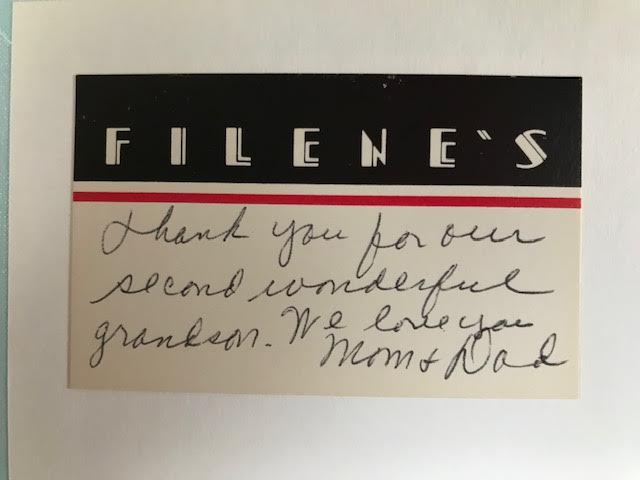 FILENE'S
Thank you for our
second wonderful
grandson. We love you
Mom & Dad